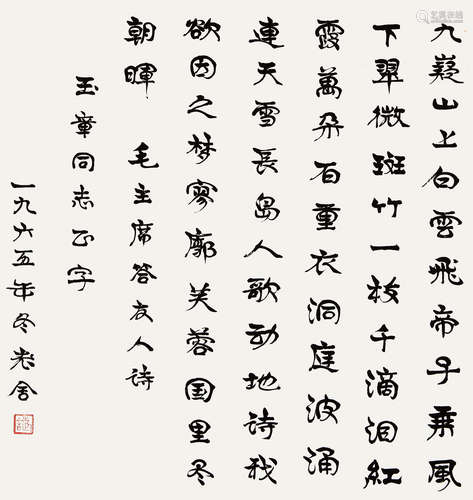 九嶷山上白雲飛帝子乘風
下翠微斑竹一枝千滴泪紅
霞萬朵百重衣洞庭波涌
連天雪長岛人歌动地诗我
欲因之梦寥廓芙蓉国里尽
朝暉 毛主席答友人诗
玉章同志正字
一九六五年冬老舍